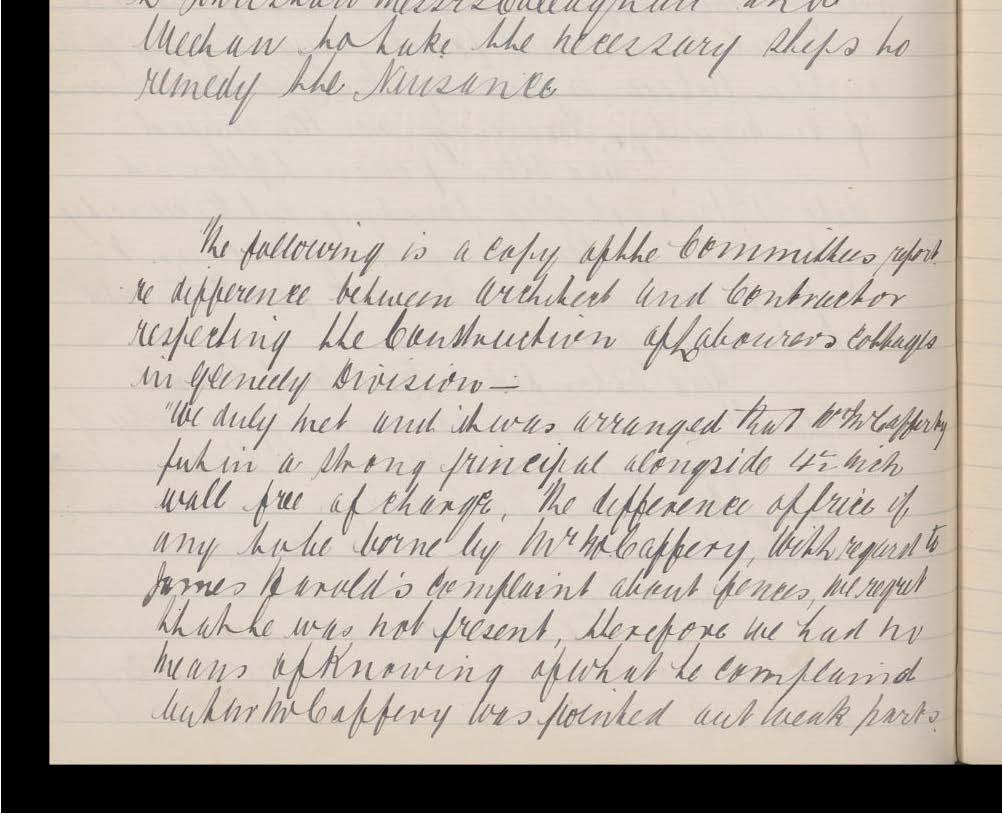 Messrs Callaghan and
Meehan to take the necessary steps to
remedy the Nuisance
The following is a copy of the Committees report
re difference between Architect and Contractor
respecting the Construction of Labourers Cottages
in Division —
"We duly met and it was arranged that Mr McCaffery
put in a strong principal alongside 4½ inch
wall free of charge, The difference of price if
any to be borne by Mr McCaffery, With regard to
James Harold's complaint about fences, we regret
that he was not present, therefore we had no
means of Knowing of what he complained
but Mr McCaffery was pointed out weak parts